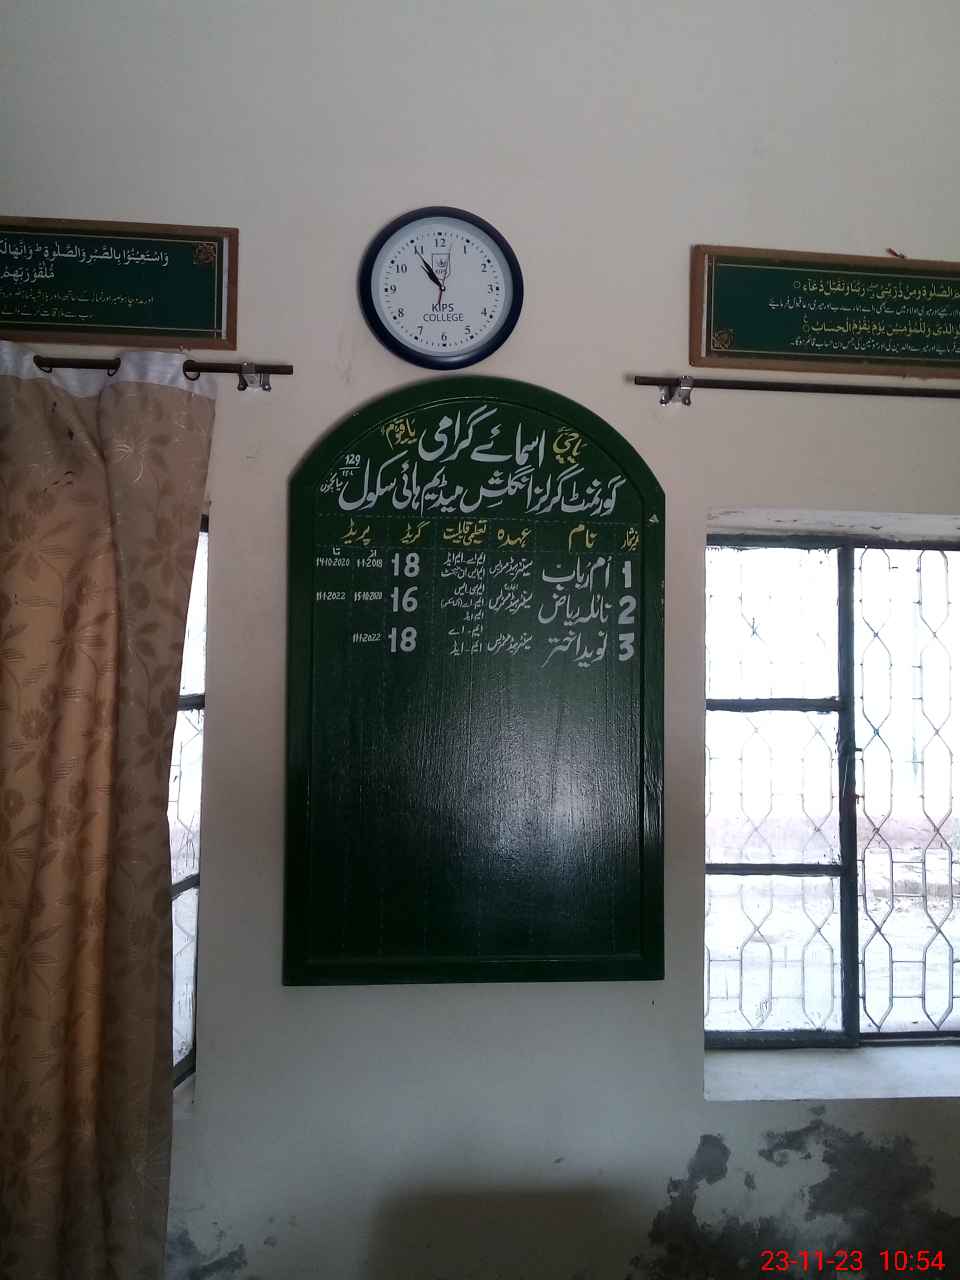 12
1
2
3
4
5
6
7
8
9
10
11
KIPS
KIPS
COLLEGE
وَاسْتَعِيْنُوْا بِالصَّبْرِ وَالصَّلٰوةِ ؕ وَاِنَّهَا
مُّلٰقُوْا رَبِّهِمْ
الصَّلٰوةِ وَمِنْ ذُرِّيَّتِيْ رَبَّنَا وَتَقَبَّلْ دُعَآءِ
وَلِلْمُؤْمِنِيْنَ يَوْمَ يَقُوْمُ الْحِسَابُ
یا حیُّ اسمائے گرامی یا قیّوم
گورنمنٹ گرلز انگلش میڈیم ہائی سکول 129
نمبر شمار نام عہدہ تعلیمی قابلیت گریڈ پریڈ
از تا
1 اُم رباب سینئر ہیڈ مسٹریس ایم اے۔ ایم ایڈ 18 1-1-2018 14-10-2020
2 نائلہ ریاض سینئر ہیڈ مسٹریس ایم ایڈ 16 15-10-2020 11-1-2022
3 نوید اختر سینئر ہیڈ مسٹریس ایم۔ اے ایم۔ ایڈ 18 11-1-2022
23-11-23 10:54